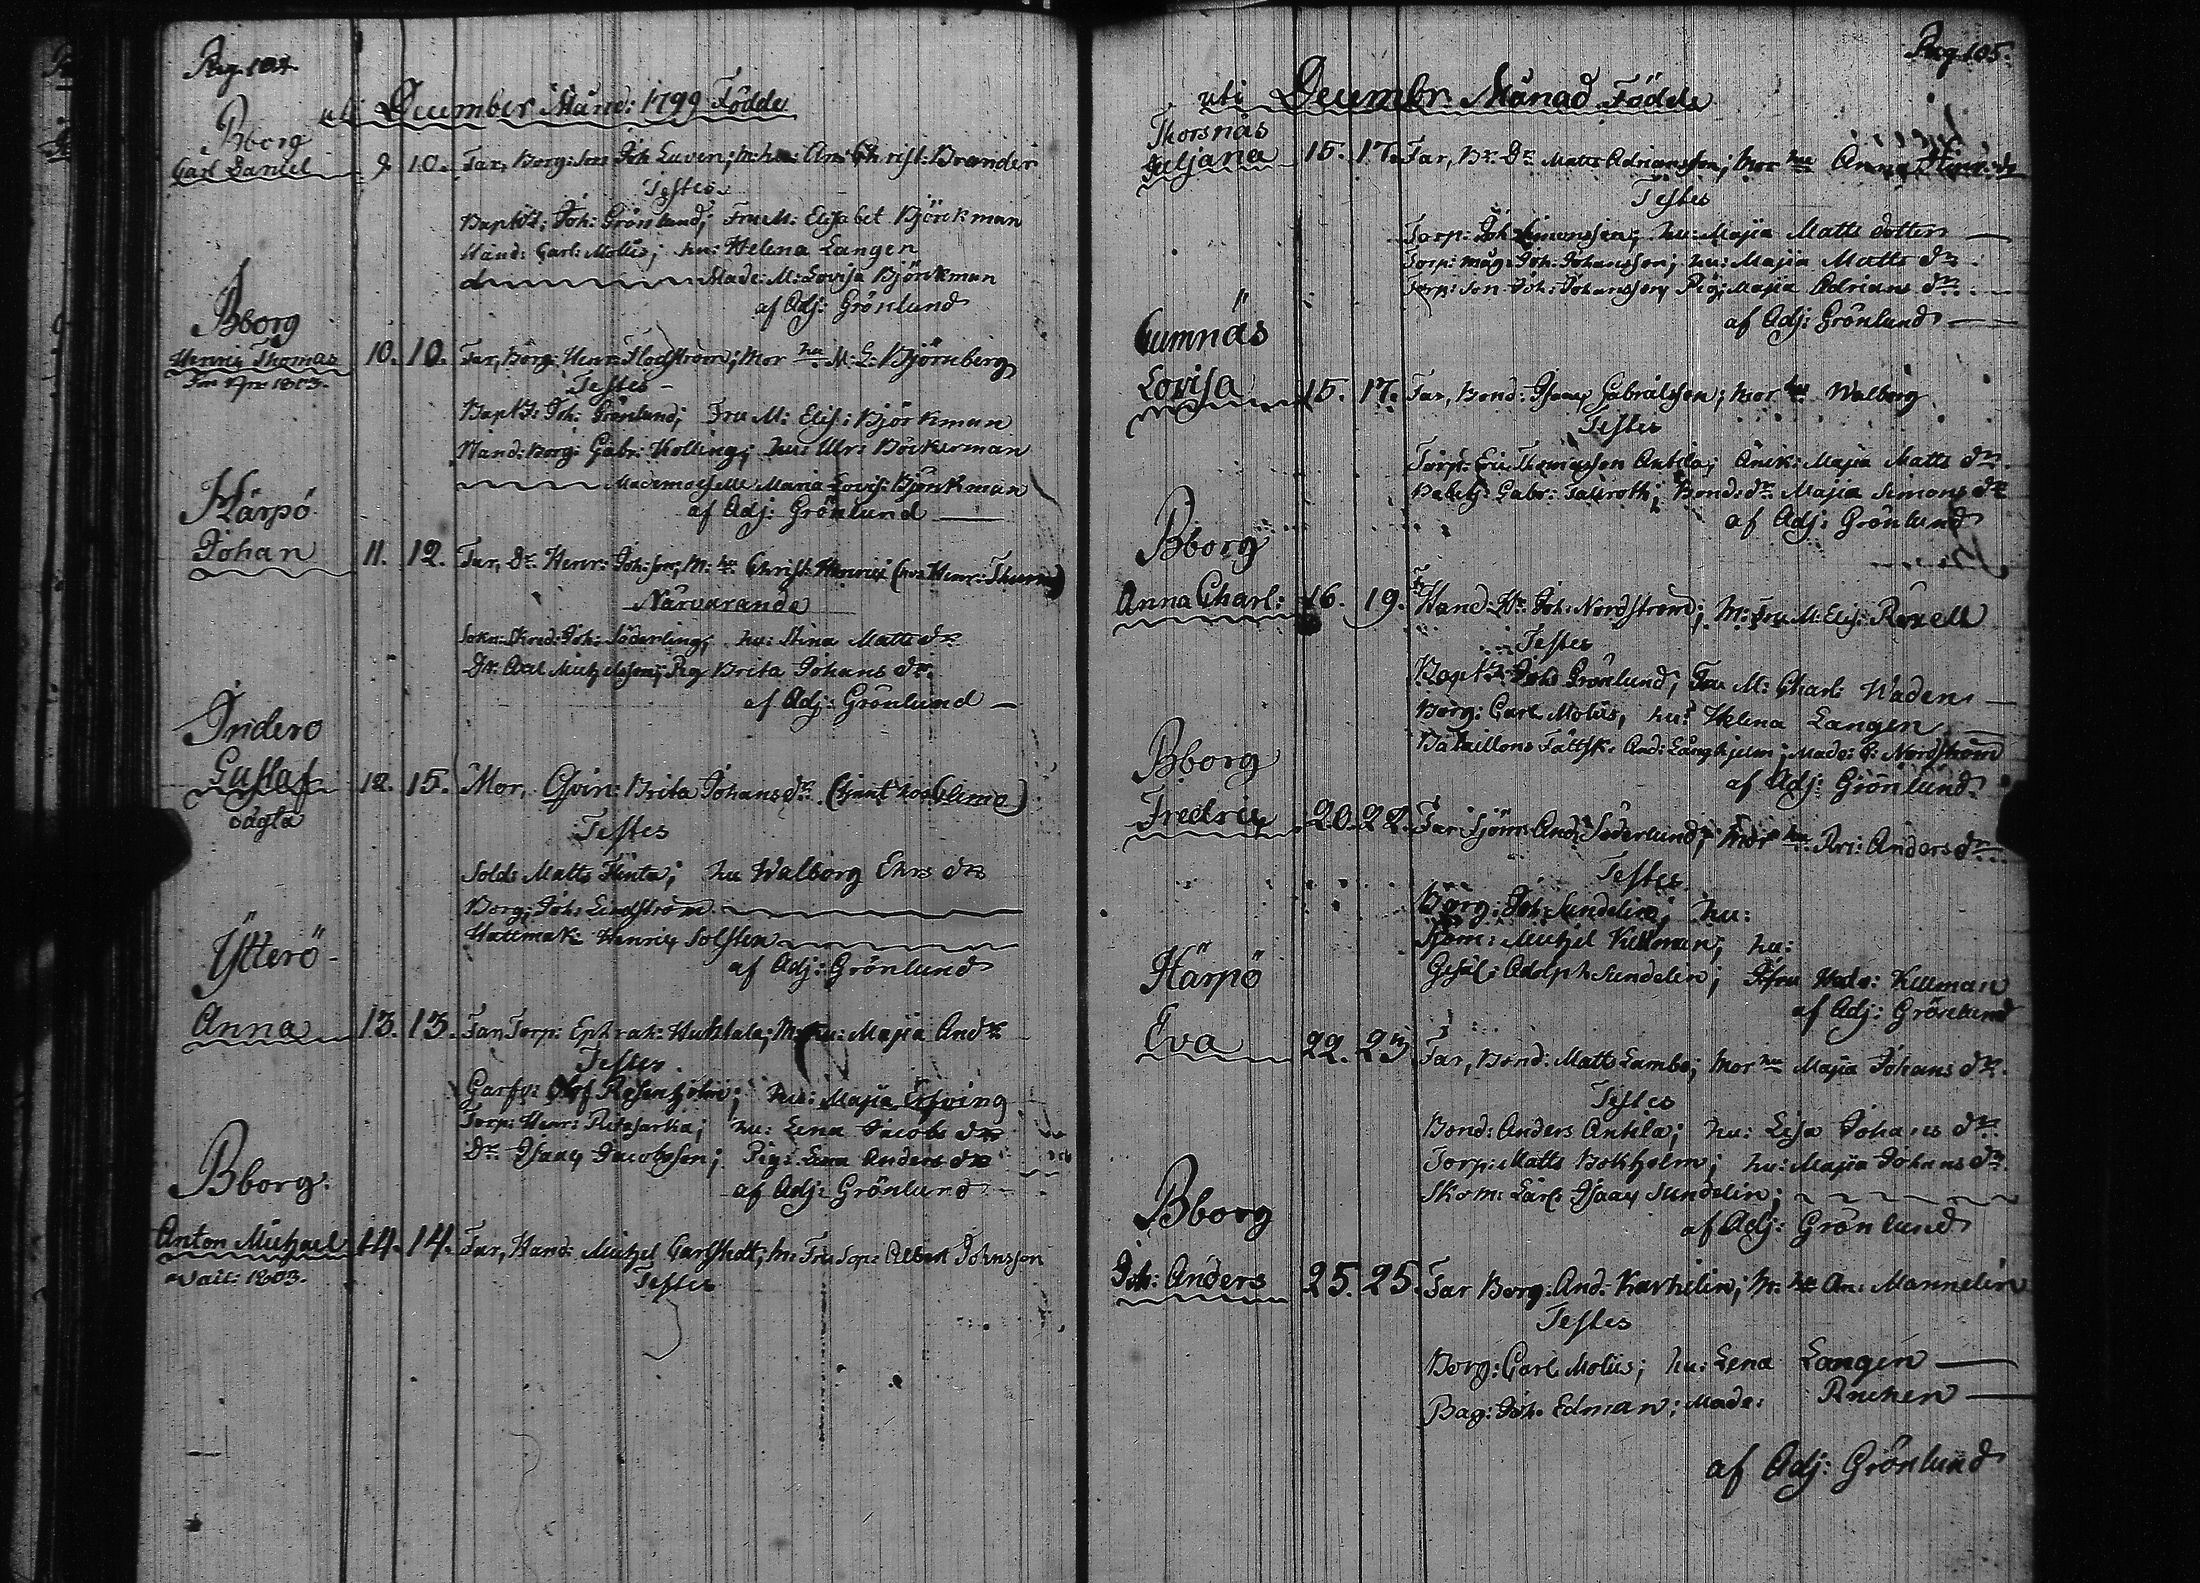 Pag. 104
uti December Månad: 1799 Födde
Bborg
Carl Daniel 9 10. Far, Borg: Son Joh Luven; M: hu: An: Christ: Brander
Testes
Joh: Grönlund; Fru M: Elisabet Björckman
Hand: Carl Molliis; hu: Helena Langen
Made: M: Lovisa Björckman
af Adj: Grönlund
Bborg
Henric Thomas 10. 10. Far, Borg: Henr: Flodström; Mor hu M: E: Björnberg
1803.
Testes
Joh: Grönlund; Fru M: Elis: Björkman
Hand: Borg: Gabr: Holling; hu: Ulr: Böckerman
Mademoiselle Maria Lovis: Björckman
af Adj: Grönlund
Härpö
Johan 11. 12. Far, Dr. Henr: Joh: son; M: hu Christ: Henric
Närvarande
Sokn: Skred: Joh: Söderling; hu: Stina Matts dr
Dr. Axel Michelsson; Pig Brita Johans dr.
af Adj: Grönlund
Indero
Gustaf 12. 15. Mor, Qvin: Brita Johans dr.
oägta
Testes
Sold: Matts Flinta; hu Walborg Ehrs dr
Borg: Joh: Lindström
Hattmak: Henric Solsten
af Adj: Grönlund
Ytterö
Anna 13. 13. Far Torp: Ephrai: Huhtala; M: hu: Majia And dr
Testes
Garfv: Olof Rosenholm; hu: Majia Erfving
Torp: Henr: Ritasarka; hu: Lena Jacobs dr
Dr. Isaac Jacobsson; Pig: Lena Anders dr
af Adj: Grönlund
Bborg:
Anton Michael 14. 14. Far, Hand: Michel Carlstedt; M: Fru Sop: Albert: Johnsson
1803.
Testes
Pag 105.
uti Decembr. Månad Födde
Thorsnäs
Juljana 15. 17. Far, Br. Dr. Matts Adriansson; Mor hu Anna
Testes
Torp: Joh Simonsson; hu: Majia Matts dotter
Torp: måg: Joh: Johansson; hu: Majia Matts dr.
Torp: Son Joh: Johansson Pig: Majia Adrians dr.
af Adj: Grönlund
Cumnäs
Lovisa 15. 17. Far, Bond: Isaac Gabrielsson; Mor hu Walborg
Testes
Torp: Eric Thomasson Anttila; Änck: Majia Matts dr.
Gabr: Tallroth; Bond: dr. Majia Simons dr
af Adj: Grönlund
Bborg
Anna Charl: 16. 19. Hand: Hr. Joh: Nordström; M: Fru M: Elis: Roxell
Testes
Joh: Grönlund; Fru M: Charl: Waden
Borg: Carl Moliis, hu: Helena Langen
Bataillons Fältsk: And: Långhjelm; Made: C: Nordström
af Adj: Grönlund
Bborg
Fredric 20. 22. Far Sjöm: And: Söderlund; Mor hu Bri: Anders dr
Testes
Borg: Joh: Sundelin; hu:
Sjöm: Michel Killman; hu:
Gesäl: Adolph Sundelin; Killman
af Adj: Grönlund
Härpö
Eva 22. 23 Far, Bond: Matts Lambo; Mor hu Majia Johans dr.
Testes
Bond: Anders Anttila; hu: Lisa Johans dr
Torp: Matts Bokholm; hu: Majia Johans dr.
Skom: Lärl: Isaac Sundelin;
af Adj: Grönlund
Bborg
Joh: Anders 25. 25. Far Borg: And: Karhilin; M: hu An: Mannelin
Testes
Borg: Carl Moliis; hu: Lena Langen
Bag: Joh: Edman; Made:
af Adj: Grönlund